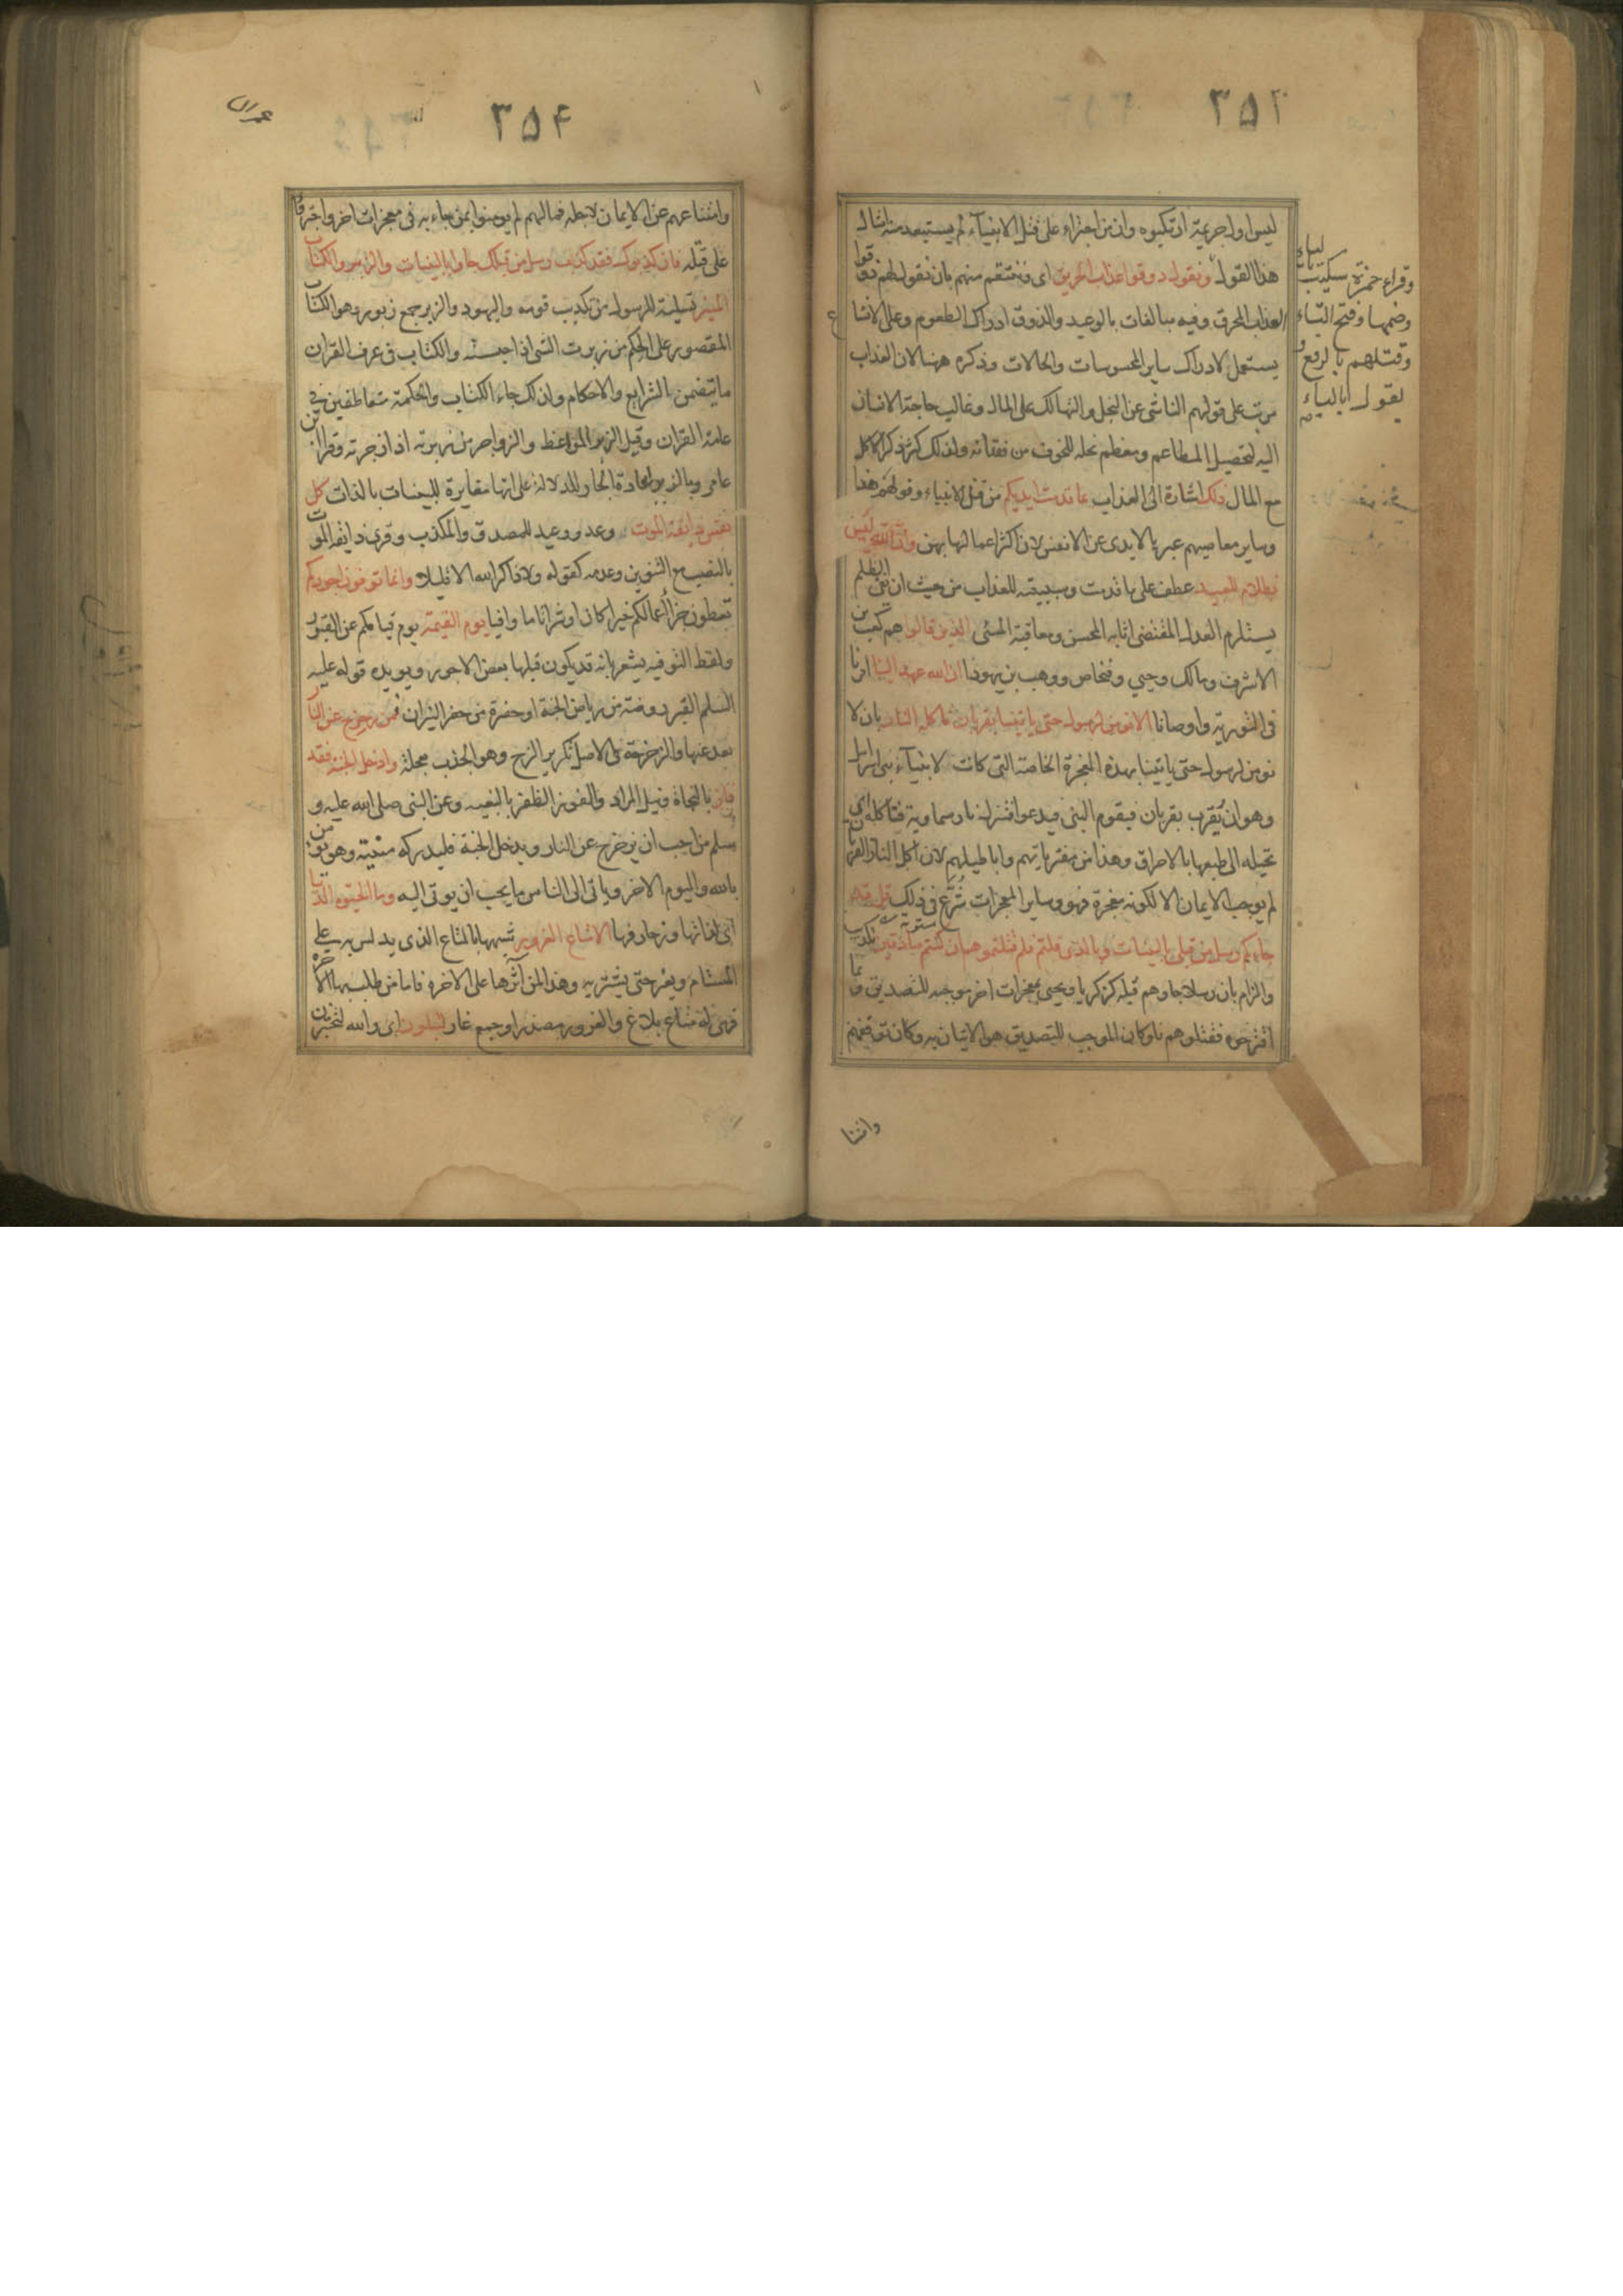 ٣٥٣
ليس اول جريمة ارتكبوه وان من اجتراء على قتل الانبياء لم يستبعد منه امثال
هذا القول ونقول ذوقوا عذاب الحريق اى وننتقم منهم بان نقول لهم ذوقوا
العذاب المحرق وفيه مبالغات بالوعيد والذوق ادراك الطعوم وعلى الاتساع
يستعمل لادراك ساير المحسوسات والحالات وذكره ههنا لان العذاب
مرتب على قولهم الناشى عن البخل والتهالك على المال وغالب حاجة الانسان
اليه لتحصيل المطاعم ومعظم بخله للخوف من فقدانه ولذلك كثر ذكر الاكل
مع المال ذلك اشارة الى العذاب بما قدمت ايديكم من قتل الانبياء وقولهم هذا
وساير معاصيهم عبر بالايدى عن الانفس لان اكثر اعمالها بهن وان الله ليس
بظلام للعبيد عطف على ما قدمت وسببيته للعذاب من حيث ان نفى الظلم
يستلزم العدل المقتضى اثابه المحسن ومعاقبة المسئى الذين قالوا هم كعب بن
الاشرف ومالك وحيى وفنحاص ووهب بن يهودا ان الله عهد الينا امرنا
فى التورية واوصانا الا نومن لرسول حتى ياتينا بقربان تاكله النار بان لا
نومن لرسول حتى ياتينا بهذه المعجزة الخاصة التى كانت لانبياء بنى اسرايل
وهو ان يقرب بقربان فيقوم النبى فيدعو فتنزل نار سماوية فتاكله اى
تحيله الى طبعها بالاحراق وهذا من مفترياتهم واباطيلهم لان اكل النار القربان
لم يوجب الايمان الا لكونه معجزة فهو وساير المعجزات شرع فى ذلك قل قد
جاءكم رسل من قبلى بالبينات وبالذى قلتم فلم قتلتموهم ان كنتم صادقين تكذيب
والزام بان رسلا جاوهم قبله كزكريا ويحيى بمعجزات اخر موجبه للتصديق وبما
اقترحوه فقتلوهم فلو كان الموجب للتصديق هو الاتيان به وكان توقفهم
وامتنا
وقراء حمزة سيكتب بالياء
وضمها وفتح التاء
وقتلهم بالرفع و
يقول بالياء
٣٥٤
عمران
وامتناعهم عن الايمان لاجله فما لهم لم يومنوا بمن جاء به فى معجزات اخر واجترؤا
على قتله فان كذبوك فقد كذب رسل من قبلك جاوا بالبينات والزبر والكتاب
المنير تسلية للرسول من تكذيب قومه واليهود والزبر جمع زبور وهو الكتاب
المقصور على الحكم من زبرت الشى اذا حبسته والكتاب فى عرف القران
ما يتضمن الشرايع والاحكام ولذلك جاء الكتاب والحكمة متعاطفين فى
عامة القران وقيل الزبر المواعظ والزواجر من زبرته اذا زجرته وقرا ابن
عامر وبالزبر باعادة الجار للدلالة على انها مغايرة للبينات بالذات كل
نفس ذايقة الموت وعد ووعيد للمصدق والمكذب وقرى ذايقة الموت
بالنصب مع التنوين وعدمه كقوله ولا ذاكر الله الا قليلا وانما توفون اجوركم
تعطون جزا اعمالكم خيرا كان او شرا تاما وافيا يوم القيمة يوم قيامكم عن القبور
ولفظ التوفيه يشعر بانه قد يكون قبلها بعض الاجور ويويده قوله عليه
السلم القبر روضة من رياض الجنة او حفرة من حفر النيران فمن زحزح عن النار
بعد عنها والزحزحة فى الاصل تكرير الزح وهو الجذب بعجلة وادخل الجنة فقد
فاز بالنجاة ونيل المراد والفوز الظفر بالبغيه وعن النبى صلى الله عليه و
سلم من احب ان يزحزح عن النار ويدخل الجنة فليدركه منيته وهو يومن
بالله واليوم الاخر وياتى الى الناس ما يحب ان يوتى اليه وما الحيوة الدنيا
اى لذاتها وزخارفها الا متاع الغرور شبهها بالمتاع الذى يدلس به على
المستام ويغر حتى يشتريه وهذا لمن آثرها على الاخره فاما من طلب بها الاخرة
فهى له متاع بلاغ والغرور مصدر او جمع غار لتبلون اى والله لتختبرن